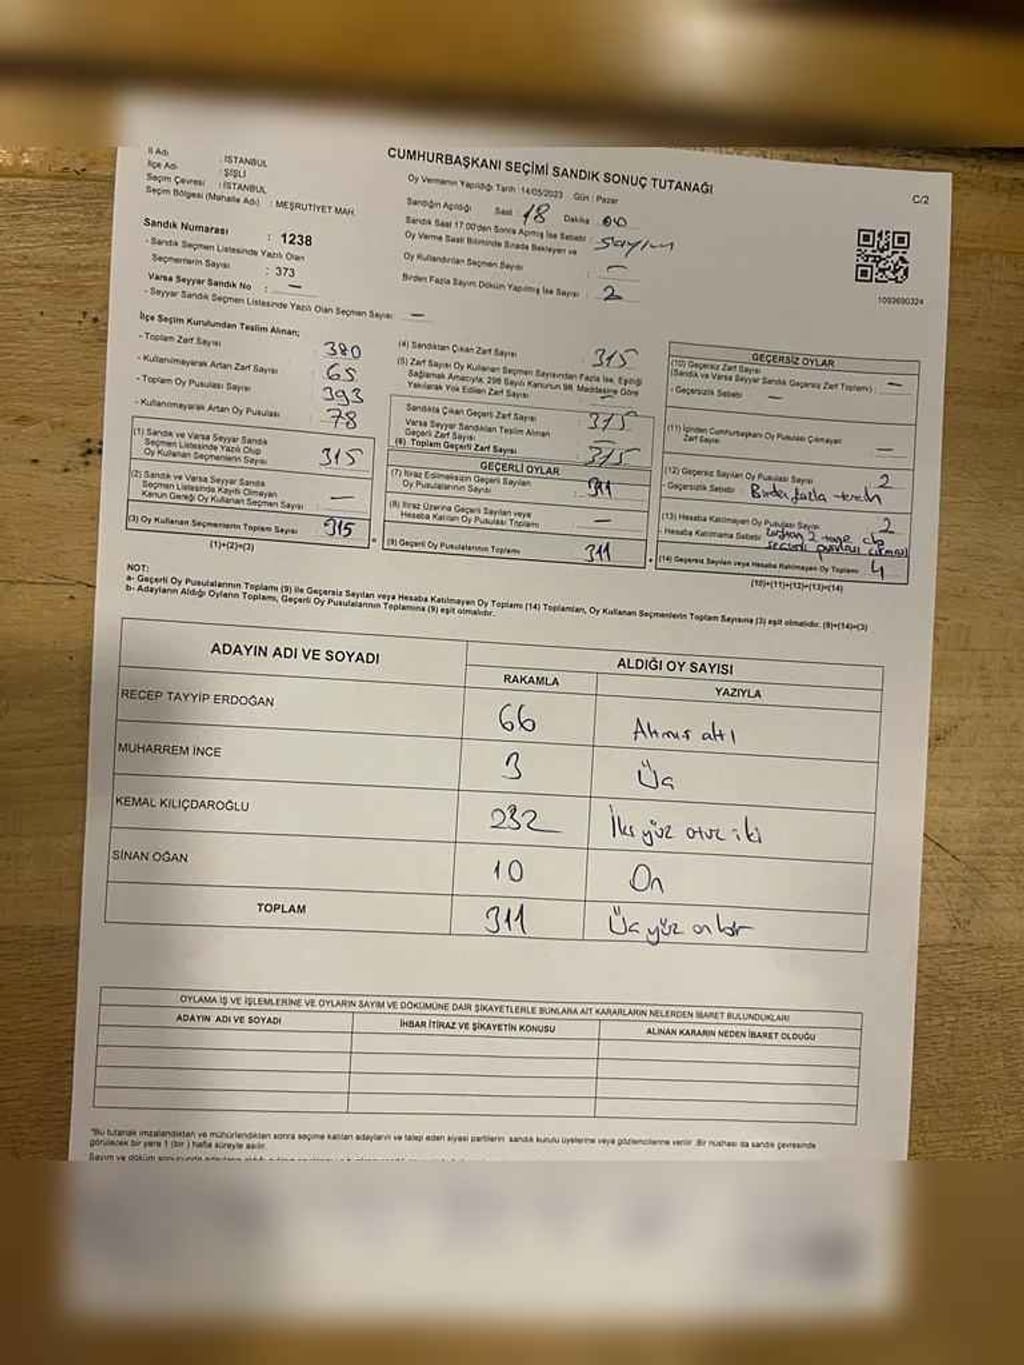 CUMHURBAŞKANI SEÇİMİ SANDIK SONUÇ TUTANAĞI
C/2
İl Adı : İSTANBUL
İlçe Adı : ŞİŞLİ
Seçim Çevresi : İSTANBUL
Seçim Bölgesi (Mahalle Adı) : MEŞRUTİYET MAH.
Oy Vermenin Yapıldığı Tarih :14/05/2023 Gün : Pazar
Sandığın Açıldığı Saat 18 Dakika 00
Sandık Saat 17.00'den Sonra Açılmış İse Sebebi : sayım
Oy Verme Saati Bitiminde Sırada Bekleyen ve
Oy Kullandırılan Seçmen Sayısı : –
Birden Fazla Sayım Döküm Yapılmış İse Sayısı : 2
1093690324
Sandık Numarası : 1238
- Sandık Seçmen Listesinde Yazılı Olan
Seçmenlerin Sayısı : 373
Varsa Seyyar Sandık No : —
- Seyyar Sandık Seçmen Listesinde Yazılı Olan Seçmen Sayısı : —
İlçe Seçim Kurulundan Teslim Alınan;
- Toplam Zarf Sayısı 380
- Kullanılmayarak Artan Zarf Sayısı 65
- Toplam Oy Pusulası Sayısı 393
- Kullanılmayarak Artan Oy Pusulası 78
(1) Sandık ve Varsa Seyyar Sandık
Seçmen Listesinde Yazılı Olup
Oy Kullanan Seçmenlerin Sayısı 315
(2) Sandık ve Varsa Seyyar Sandık
Seçmen Listesinde Kayıtlı Olmayan
Kanun Gereği Oy Kullanan Seçmen Sayısı —
(3) Oy Kullanan Seçmenlerin Toplam Sayısı 315
(1)+(2)=(3)
(4) Sandıktan Çıkan Zarf Sayısı 315
(5) Zarf Sayısı Oy Kullanan Seçmen Sayısından Fazla İse, Eşitliği
Sağlamak Amacıyla, 298 Sayılı Kanunun 98. Maddesine Göre
Yakılarak Yok Edilen Zarf Sayısı —
Sandıkta Çıkan Geçerli Zarf Sayısı 315
Varsa Seyyar Sandıktan Teslim Alınan
Geçerli Zarf Sayısı
(6) Toplam Geçerli Zarf Sayısı 315
GEÇERLİ OYLAR
(7) İtiraz Edilmeksizin Geçerli Sayılan
Oy Pusulalarının Sayısı 311
(8) İtiraz Üzerine Geçerli Sayılan veya
Hesaba Katılan Oy Pusulası Toplamı —
(9) Geçerli Oy Pusulalarının Toplamı 311
GEÇERSİZ OYLAR
(10) Geçersiz Zarf Sayısı
(Sandık ve Varsa Seyyar Sandık Geçersiz Zarf Toplamı) : —
- Geçersizlik Sebebi : —
(11) İçinden Cumhurbaşkanı Oy Pusulası Çıkmayan
Zarf Sayısı —
(12) Geçersiz Sayılan Oy Pusulası Sayısı 2
- Geçersizlik Sebebi : Birden fazla tercih
(13) Hesaba Katılmayan Oy Pusulası Sayısı 2
- Hesaba Katılmama Sebebi : 2 tane
(14) Geçersiz Sayılan veya Hesaba Katılmayan Oy Toplamı 4
(10)+(11)+(12)+(13)=(14)
NOT:
a- Geçerli Oy Pusulalarının Toplamı (9) ile Geçersiz Sayılan veya Hesaba Katılmayan Oy Toplamı (14) Toplamları, Oy Kullanan Seçmenlerin Toplam Sayısına (3) eşit olmalıdır. (9)+(14)=(3)
b- Adayların Aldığı Oyların Toplamı, Geçerli Oy Pusulalarının Toplamına (9) eşit olmalıdır.
ADAYIN ADI VE SOYADI ALDIĞI OY SAYISI
RAKAMLA YAZIYLA
RECEP TAYYİP ERDOĞAN 66 Altmış altı
MUHARREM İNCE 3 Üç
KEMAL KILIÇDAROĞLU 232 İki yüz otuz iki
SİNAN OĞAN 10 On
TOPLAM 311 Üç yüz on bir
OYLAMA İŞ VE İŞLEMLERİNE VE OYLARIN SAYIM VE DÖKÜMÜNE DAİR ŞİKAYETLERLE BUNLARA AİT KARARLARIN NELERDEN İBARET BULUNDUKLARI
ADAYIN ADI VE SOYADI İHBAR İTİRAZ VE ŞİKAYETİN KONUSU ALINAN KARARIN NEDEN İBARET OLDUĞU
"Bu tutanak imzalandıktan ve mühürlendikten sonra seçime katılan adayların ve talep eden siyasi partilerin sandık kurulu üyelerine veya gözlemcilerine verilir. Bir nüshası da sandık çevresinde
görülecek bir yere 1 (bir) hafta süreyle asılır.